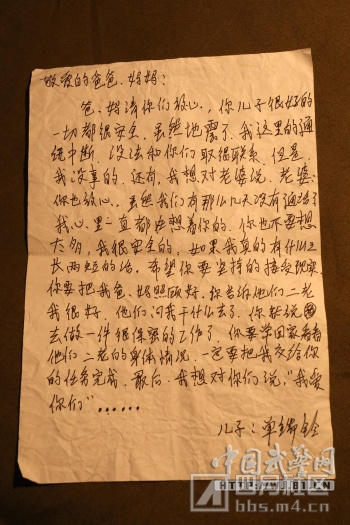 敬爱的爸爸、妈妈：
爸、妈请你们放心，你儿子很好的
一切都很安全，虽然地震了，我这里的通
讯中断，没法和你们取得联系，但是
我没事的。还有，我想对老婆说：老婆：
你也放心，虽然我们有那么几天没有通话了
我心里一直都在想着你的，你也不要想
太多，我很安全的，如果我真的有什么
长两短的话，希望你要坚持的接受现实
你要把我爸、妈照顾好，你告诉他们二老
我很好，他们问我干什么去了，你就说
去做一件很保密的工作了，你要常回家看看
他们二老的身体情况，一定要把我交给你
的任务完成，最后，我想对你们说，“我爱
你们”……
儿子：
中国武警网
HTTP://WJ.81.CN